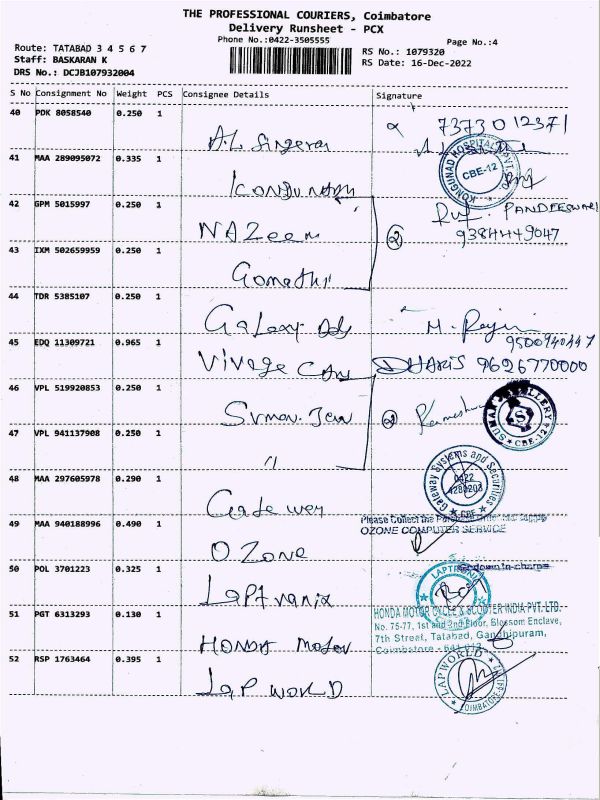 THE PROFESSIONAL COURIERS, Coimbatore
Delivery Runsheet - PCX
Phone No.:0422-3505555
Page No.:4
Route: TATABAD 3 4 5 6 7
Staff: BASKARAN K
DRS No.: DCJB107932004
RS No.: 1079320
RS Date: 16-Dec-2022
S No Consignment No Weight PCS Consignee Details Signature
40 PDK 8058540 0.250 1 A.L 7373012371
41 MAA 289095072 0.335 1 KONGUNAD HOSPITAL PVT. CBE-12
42 GPM 5015997 0.250 1 NAZeem PANDEESWARI
9384449047
43 IXM 502659959 0.250 1 Gomathi
44 TDR 5385107 0.250 1 Galaxy Ads M.
45 EDQ 11309721 0.965 1 Vivage 9626770000
46 VPL 519920853 0.250 1 Suman Jew SUMAN JEWELLERY S CBE-12
47 VPL 941137908 0.250 1 "
48 MAA 297605978 0.290 1 Gate way Gateway Systems and Securities 0422 4280203 CBE
49 MAA 940188996 0.490 1 OZone Please Collect the
OZONE COMPUTER SERVICE
50 POL 3701223 0.325 1 LapTronix
51 PGT 6313293 0.130 1 HONDA Motor HONDA MOTOR CYCLE & SCOOTER INDIA PVT. LTD.
No. 75-77, 1st and 2nd Floor, Blossom Enclave,
7th Street, Tatabad, Gandhipuram,
Coimbatore - 641 012
52 RSP 1763464 0.395 1 Lap WORLD LAP WORLD COIMBATORE